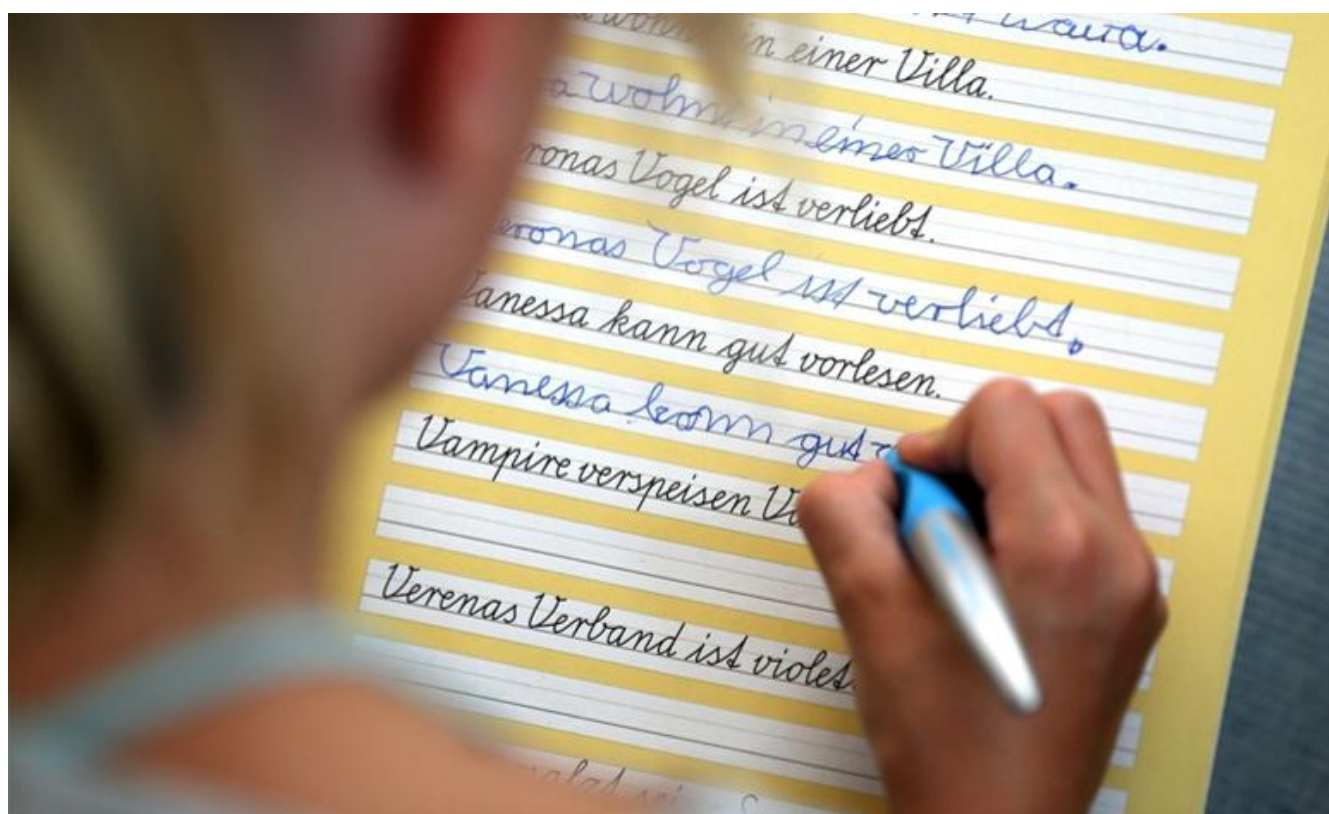 wava.
in einer Villa.
wohnt in einer Villa.
Vogel ist verliebt.
Vogel ist verliebt.
Vanessa kann gut vorlesen.
Vanessa kann gut
Vampire verspeisen
Verenas Verband ist violet